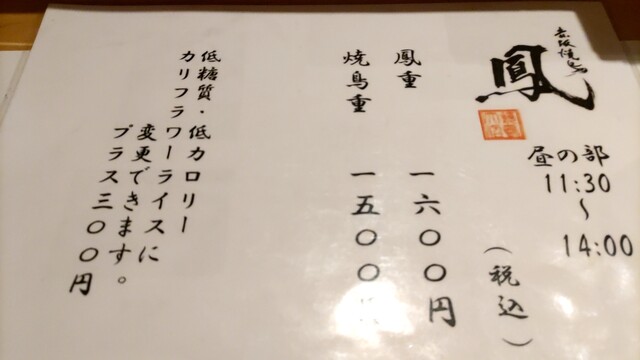 赤坂焼鳥
鳳
昼の部
11:30
〜
14:00
(税込)
鳳重 一六〇〇円
焼鳥重 一五〇〇円
低糖質・低カロリー
カリフラワーライスに
変更できます。
プラス三〇〇円